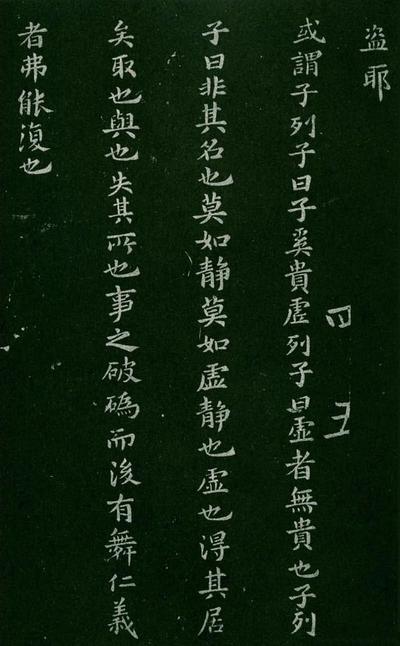 盗耶
或謂子列子曰子奚貴虛列子曰虛者無貴也子列
子曰非其名也莫如静莫如虛静也虛也淂其居
矣取也與也失其所也事之破䃣而後有舞仁義
者弗能復也
四 五